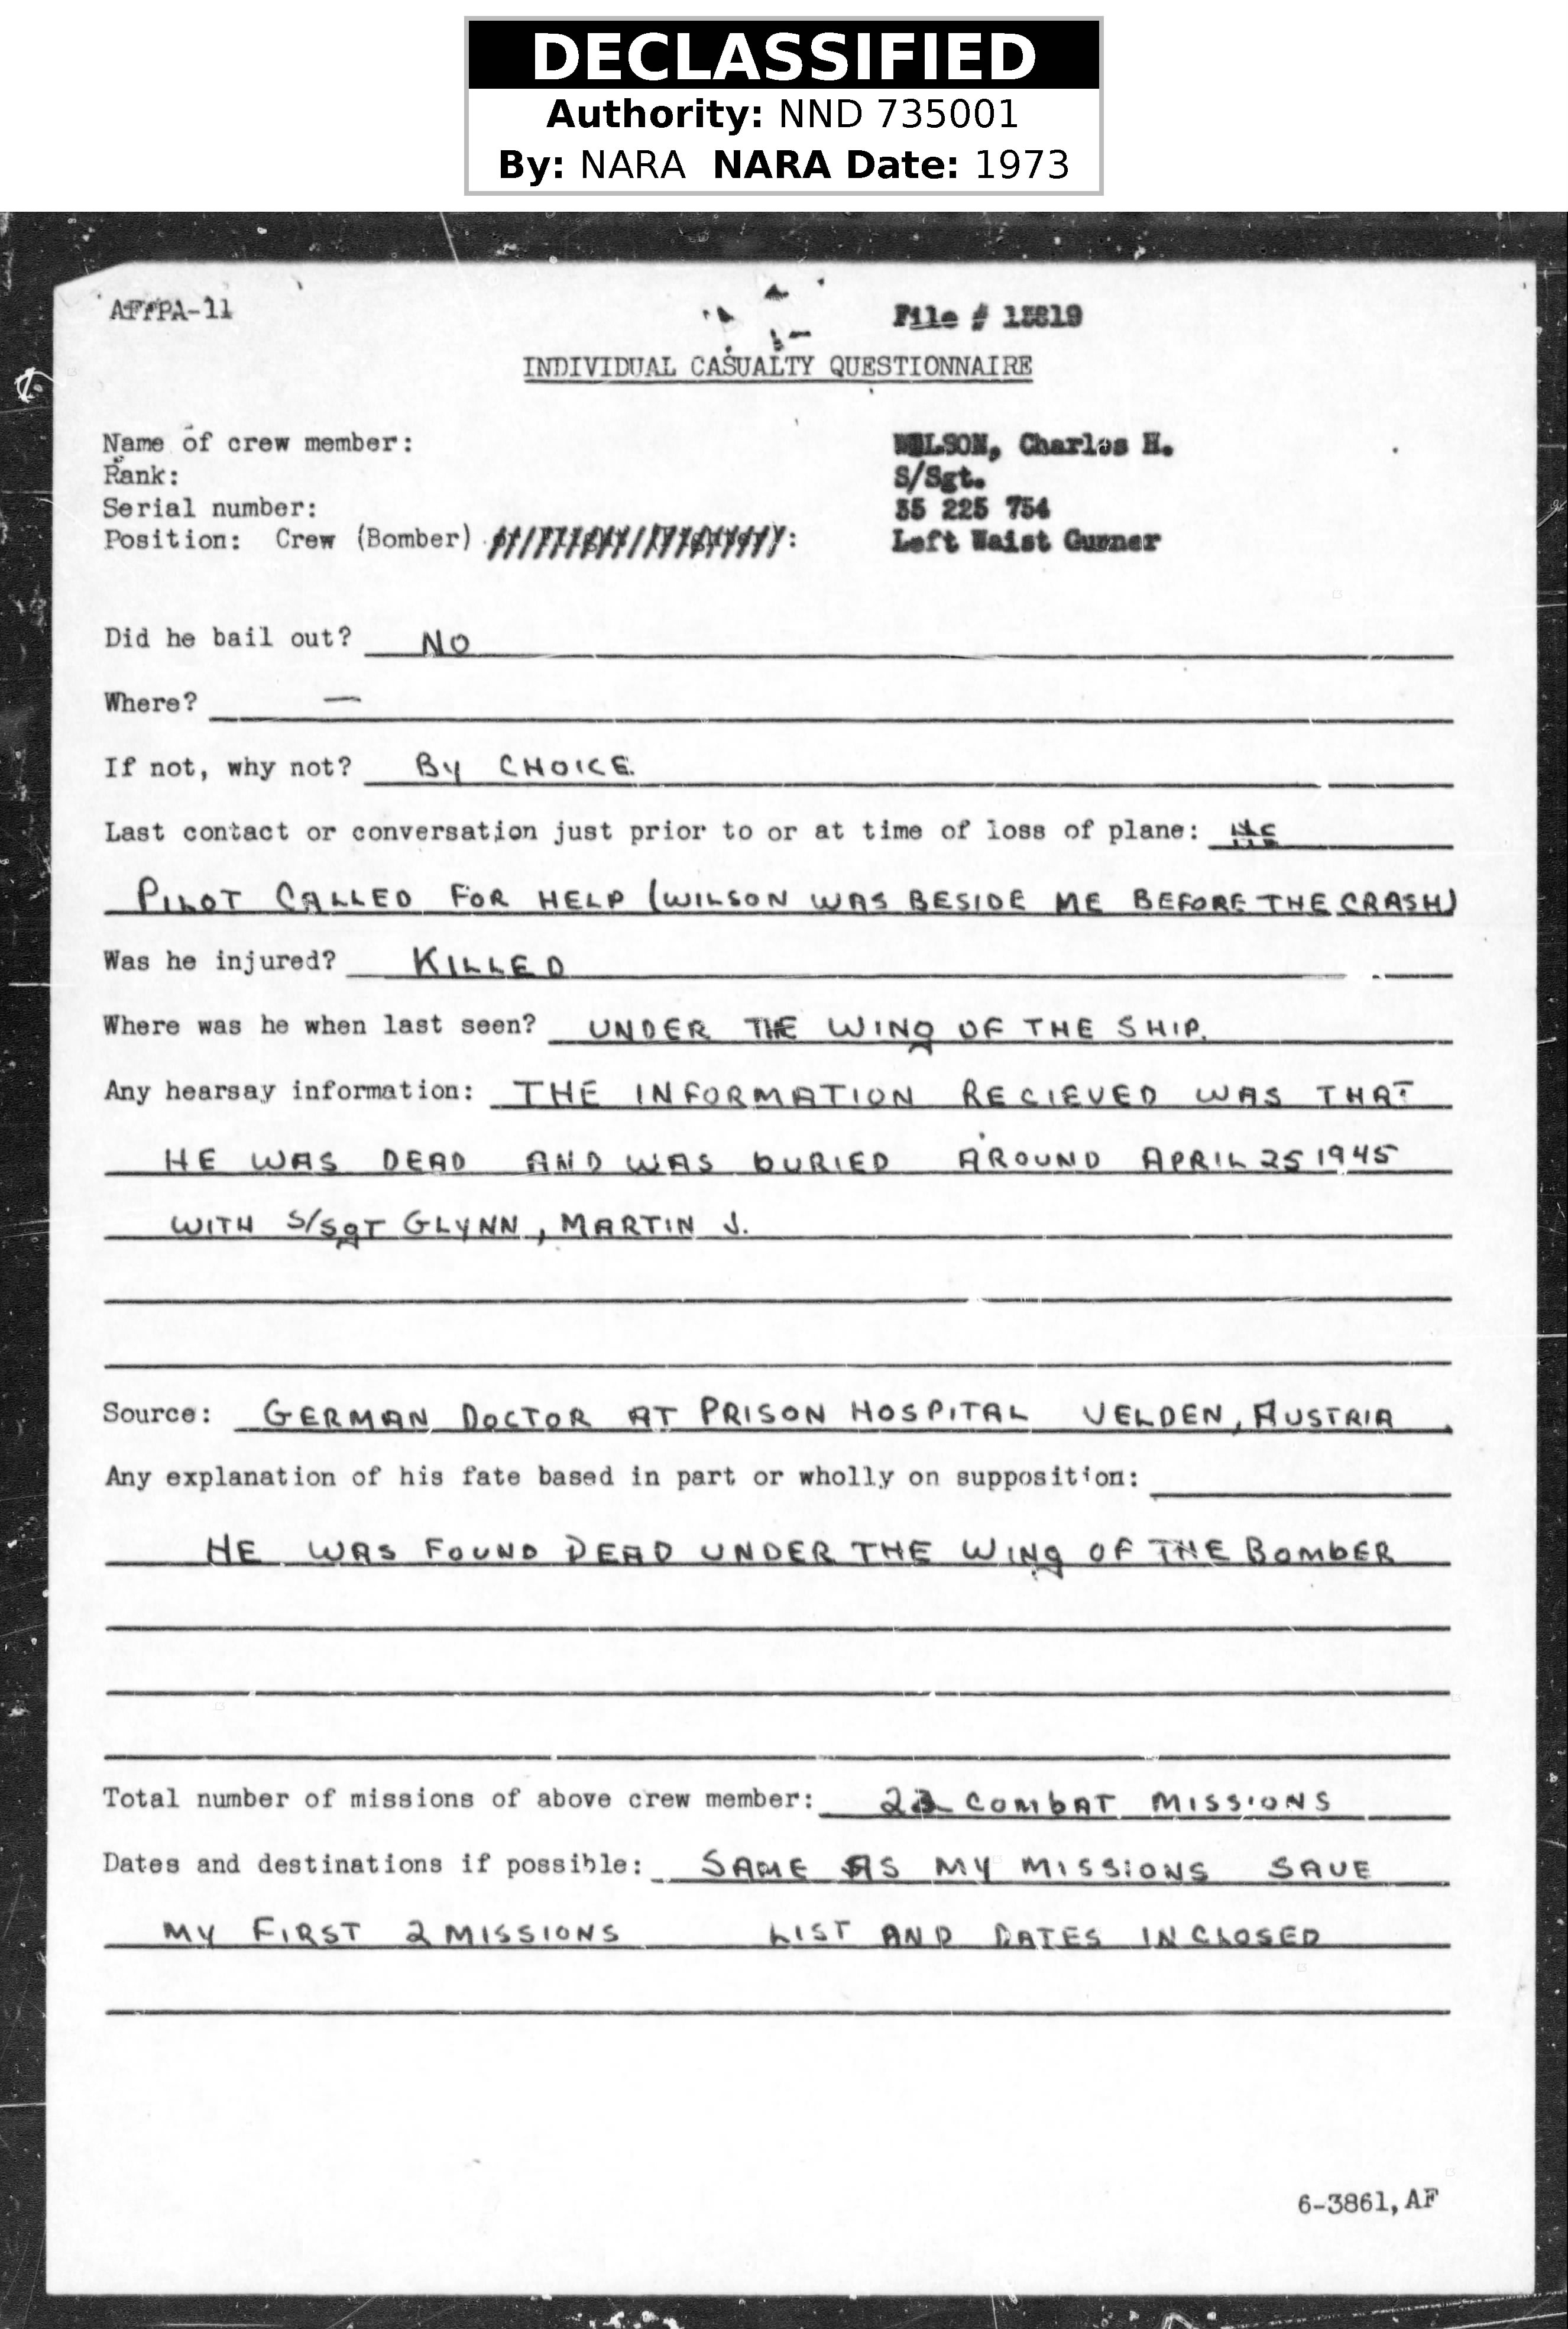 DECLASSIFIED
Authority: NND 735001
By: NARA NARA Date: 1973
AFPPA-11
File #
INDIVIDUAL CASUALTY QUESTIONNAIRE
Name of crew member: WILSON, Charles H.
Rank: S/Sgt.
Serial number: 35 225 754
Position: Crew (Bomber) : Left Waist Gunner
Did he bail out? NO
Where? —
If not, why not? BY CHOICE.
Last contact or conversation just prior to or at time of loss of plane:
PILOT CALLED FOR HELP (WILSON WAS BESIDE ME BEFORE THE CRASH)
Was he injured? KILLED
Where was he when last seen? UNDER THE WING OF THE SHIP.
Any hearsay information: THE INFORMATION RECIEVED WAS THAT
HE WAS DEAD AND WAS BURIED AROUND APRIL 25 1945
WITH S/SGT GLYNN, MARTIN J.
Source: GERMAN DOCTOR AT PRISON HOSPITAL VELDEN, AUSTRIA
Any explanation of his fate based in part or wholly on supposition:
HE WAS FOUND DEAD UNDER THE WING OF THE BOMBER
Total number of missions of above crew member: COMBAT MISSIONS
Dates and destinations if possible: SAME AS MY MISSIONS SAVE
MY FIRST 2 MISSIONS LIST AND DATES INCLOSED
6-3861, AF